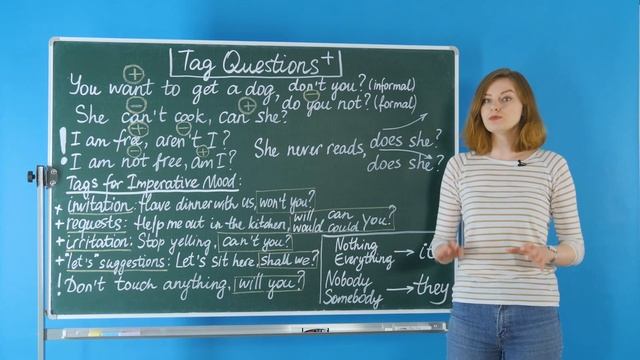 Tag Questions+
You want to get a dog, don't you? (informal)
do you not? (formal)
She can't cook, can she?
! I am free, aren't I?
! I am not free, am I?
She never reads, does she?
does she?
Tags for Imperative Mood:
+ invitation: Have dinner with us, won't you?
+ requests: Help me out in the kitchen, will can
would could you?
+ irritation: Stop yelling, can't you?
+ "let's" suggestions: Let's sit here, shall we?
! Don't touch anything, will you?
Nothing
Everything → it
Nobody
Somebody → they